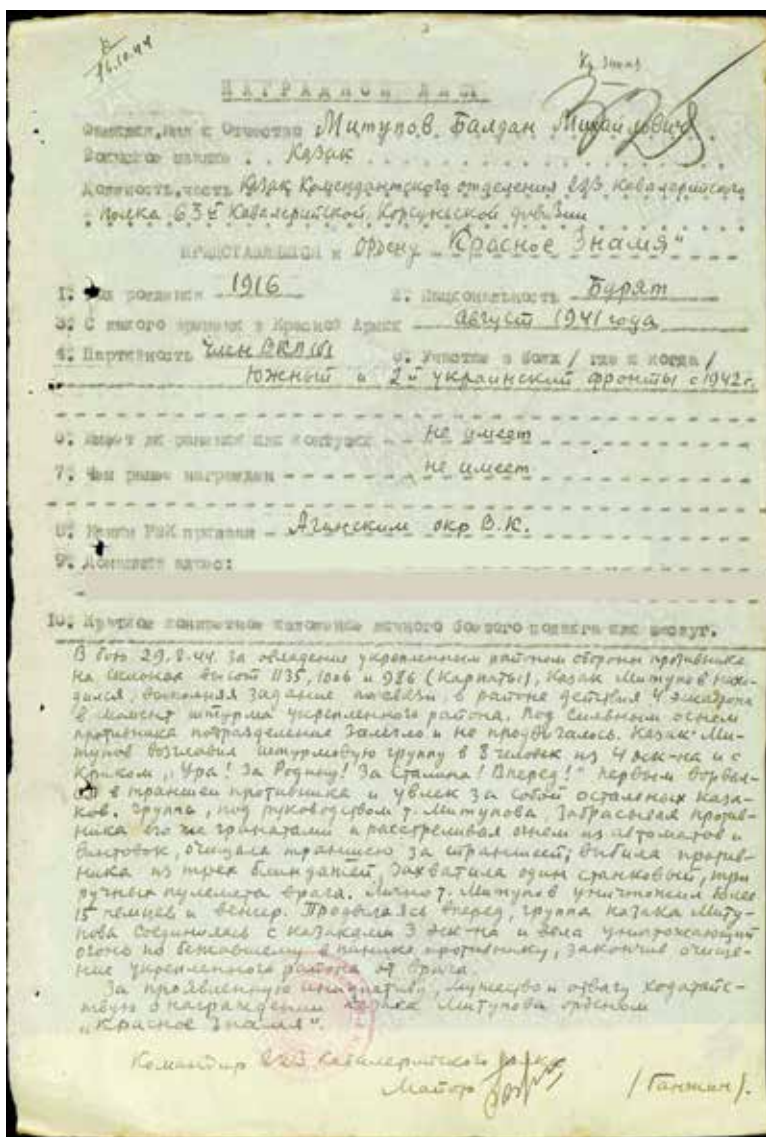 16.10.44
Кр. Знамя
325
НАГРАДНОЙ ЛИСТ
Фамилия, имя и Отчество Митупов Балдан Михайлович
Воинское звание . . Казак
Должность, часть Казак Комендантского отделения 223 Кавалерийского
полка 63й Кавалерийской Корсуньской дивизии
ПРЕДСТАВЛЯЕТСЯ к Ордену „Красное Знамя"
1. Год рождения 1916 2. Национальность Бурят
3. С какого времени в Красной Армии август 1941 года
4. Партийность Член ВКП(б) 5. Участие в боях / где и когда /
Южный и 2й украинский фронты с 1942 г.
6. Имеет ли ранения или контузии - - не имеет
7. Чем ранее награжден - - - - не имеет
8. Каким РВК призван - Агинским окр В.К.
9. Домашний адрес:
10. Краткое конкретное изложение личного боевого подвига или заслуг.
В бою 29.8.44. за овладение укрепленным районом обороны противника
на склонах высот 1135, 1006 и 986 (Карпаты), Казак Митупов нахо-
дился, выполняя задание по связи, в районе действия 4 эскадрона
в момент штурма укрепленного района. Под сильным огнем
противника подразделение залегло и не продвигалось. Казак Ми-
тупов возглавил штурмовую группу в 8 человек из 4 эск-на и с
криком „Ура! За Родину! За Сталина! Вперед!" первым ворвал-
ся в траншеи противника и увлек за собой остальных каза-
ков. Группа, под руководством т. Митупова, забрасывая против-
ника его же гранатами и расстреливая огнем из автоматов и
винтовок, очищала траншею за траншеей, выбила против-
ника из трех блиндажей, захватила один станковый, три
ручных пулемета врага. Лично т. Митупов уничтожил более
15 немцев и венгер. Продвигаясь вперед, группа казака Миту-
пова соединилась с казаками 3 эск-на и вела уничтожающий
огонь по бежавшему в панике противнику, закончив очище-
ние укрепленного района от врага.
За проявленную инициативу, мужество и отвагу ходатайс-
твую о награждении казака Митупова орденом
„Красное Знамя".
Командир 223 Кавалерийского полка
Майор (Ганжин).